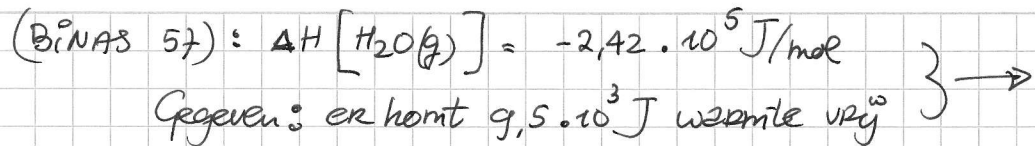 (BiNAS 57): ΔH [H₂O(g)] = -2,42 . 10⁵ J/mol
Gegeven: er komt 9,5 . 10³ J warmte vrij } →